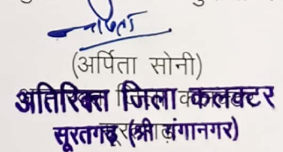 (अर्पिता सोनी)
अतिरिक्त जिला कलक्टर
सूरतगढ़ (श्री गंगानगर)